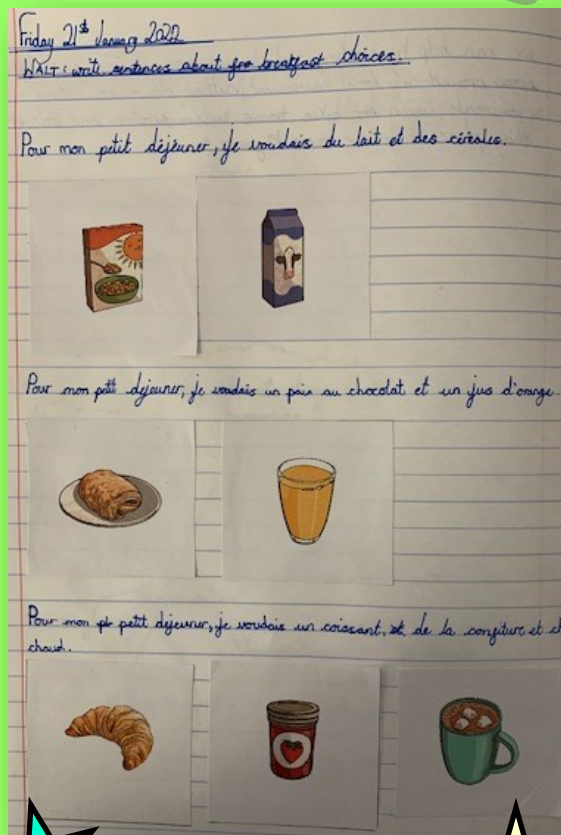 Friday 21st January 2022
WALT: write sentences about for breakfast choices.
Pour mon petit déjeuner, je voudais du lait et des céréales.
Pour mon petit dejeuner, je voudais un pain au chocolat et un jus d'orange
Pour mon petit dejeuner, je voudais un coissant, de la confiture et
chaud.